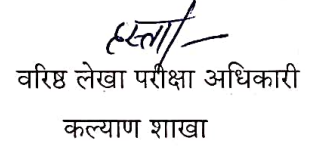 हस्ता/-
वरिष्ठ लेखा परीक्षा अधिकारी
कल्याण शाखा